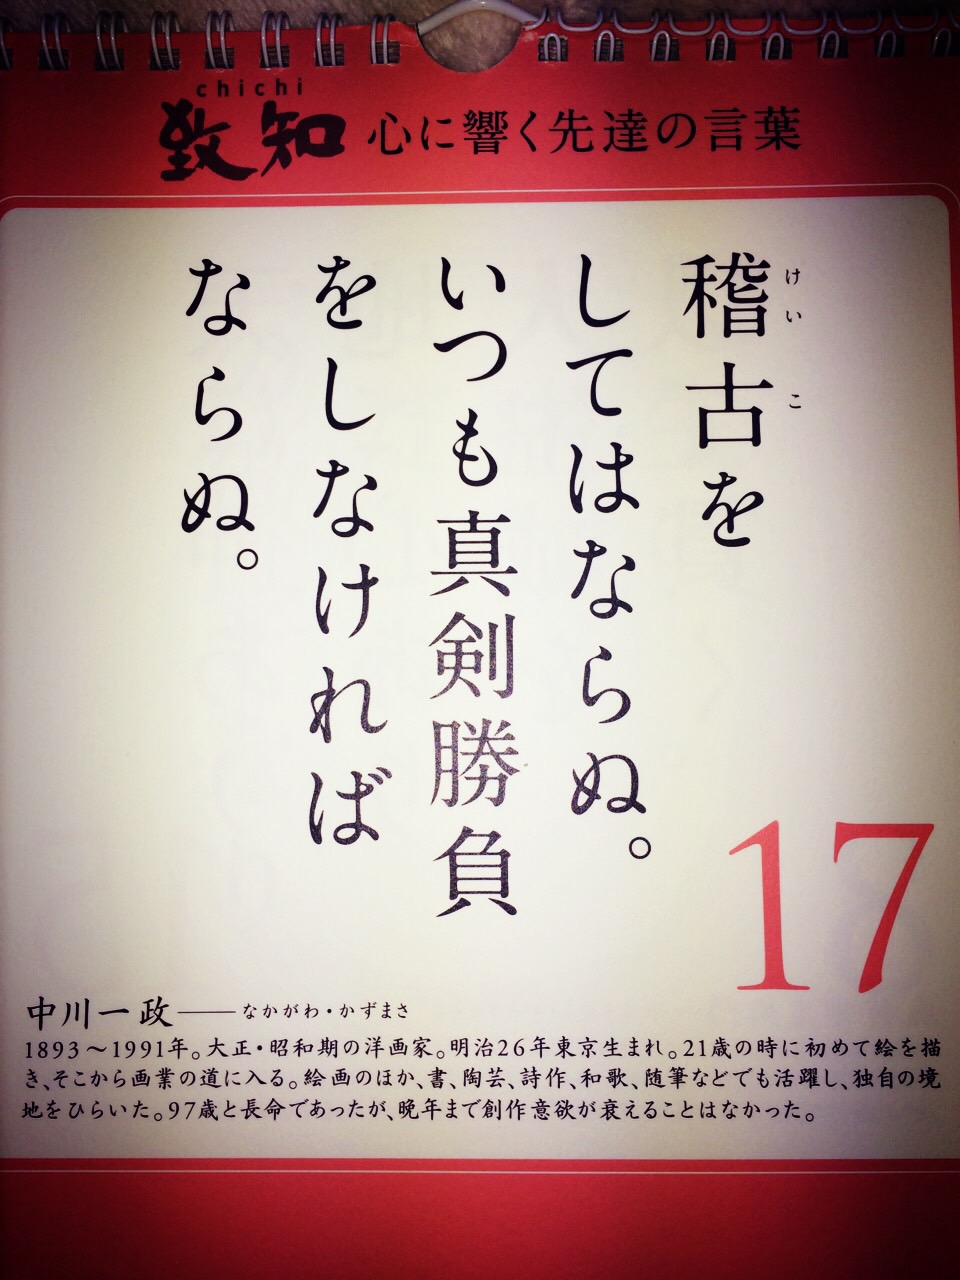 chichi
致知 心に響く先達の言葉
けいこ
稽古を
してはならぬ。
いつも真剣勝負
をしなければ
ならぬ。
17
中川一政──なかがわ・かずまさ
1893～1991年。大正・昭和期の洋画家。明治26年東京生まれ。21歳の時に初めて絵を描
き、そこから画業の道に入る。絵画のほか、書、陶芸、詩作、和歌、随筆などでも活躍し、独自の境
地をひらいた。97歳と長命であったが、晩年まで創作意欲が衰えることはなかった。